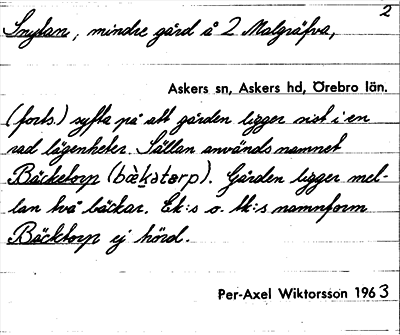 2
Snytan, mindre gård å 2 Malgräfva,
Askers sn, Askers hd, Örebro län.
(forts.) syfta på att gården ligger sist i en
rad lägenheter. Sällan används namnet
Bäcketorp (bæ̀kətɷrp). Gården ligger mel-
lan två bäckar. Ek:s o. tk:s namnform
Bäcktorp ej hörd.
Per-Axel Wiktorsson 1963